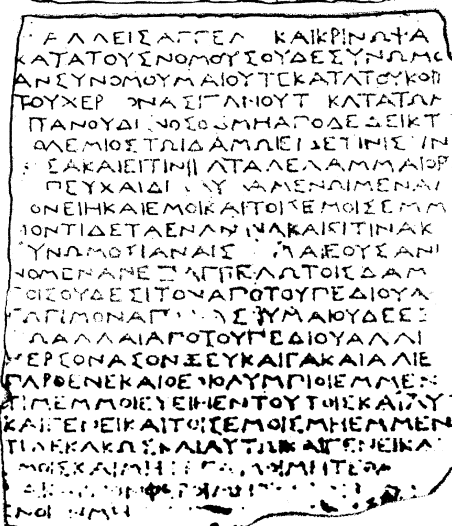 ΑΛΛΕΙΣΑΓΓΕΛ ΚΑΙΚΡΙΝΩΨΑ
ΚΑΤΑΤΟΥΣΝΟΜΟΥΣΟΥΔΕΣΥΝΩΜΟ
ΑΝΣΥΝΟΜΟΥΜΑΙΟΥΤΕΚΑΤΑΤΟΥΚΟΙ
ΤΟΥΧΕΡ ΟΝΑΣΙΤΑΝΟΥΤ ΚΑΤΑΤΩΝ
ΙΤΑΝΟΥΔΕΝΟΣΟΣΜΗΑΠΟΔΕΔΕΙΚΤ
ΟΛΕΜΙΟΣΤΩΙΔΑΜΩΙΕΙΔΕΤΙΝΙΣΥΝ
ΣΑΚΑΙΕΙΤΙΝΙΚΑΤΑΛΕΛΑΜΜΑΙΟΡ
ΗΕΥΧΑΙΔΙ ΛΥ ΑΜΕΝΩΙΜΕΝΑΜ
ΟΝΕΙΗΚΑΙΕΜΟΙΚΑΙΤΟΙΣΕΜΟΙΣΕΜΜ
ΝΟΝΤΙΔΕΤΑΕΝΑΝ ΙΑΚΑΙΕΙΤΙΝΑΚ
ΥΝΩΜΟΣΙΑΝΑΙΣ ΜΑΙΕΟΥΣΑΝ
ΝΟΜΕΝΑΝΕΞΑΓΓΕΛΩΤΟΙΣΔΑΜ
ΟΙΣΟΥΔΕΣΙΤΟΝΑΠΟΤΟΥΠΕΔΙΟΥΑ
ΓΩΓΙΜΟΝΑΠ ΣΟΥΜΑΙΟΥΔΕΕΞ
ΩΑΛΛΑΙΑΠΟΤΟΥΠΕΔΙΟΥΑΛΛ
ΧΕΡΣΟΝΑΣΟΝΖΕΥΚΑΙΓΑΚΑΙΑΛΙΕ
ΠΑΡΘΕΝΕΚΑΙΘΕΟΙΟΛΥΜΠΙΟΙΕΜΜΕΝ
ΤΙΜΕΜΜΟΙΕΥΕΙΗΕΝΤΟΥΤΟΙΣΚΑΙΑΥΤ
ΚΑΙΓΕΝΕΙΚΑΙΤΟΙΣΕΜΟΙΣΜΗΕΜΜΕΝ
ΤΙΔΕΚΑΚΩΣΚΑΙΑΥΤΩΙΚΑΙΓΕΝΕΙΚΑ
ΜΟΙΣΚΑΙΜΗΤΕΓΑΜΟΙΜΗΤΕΘΑ